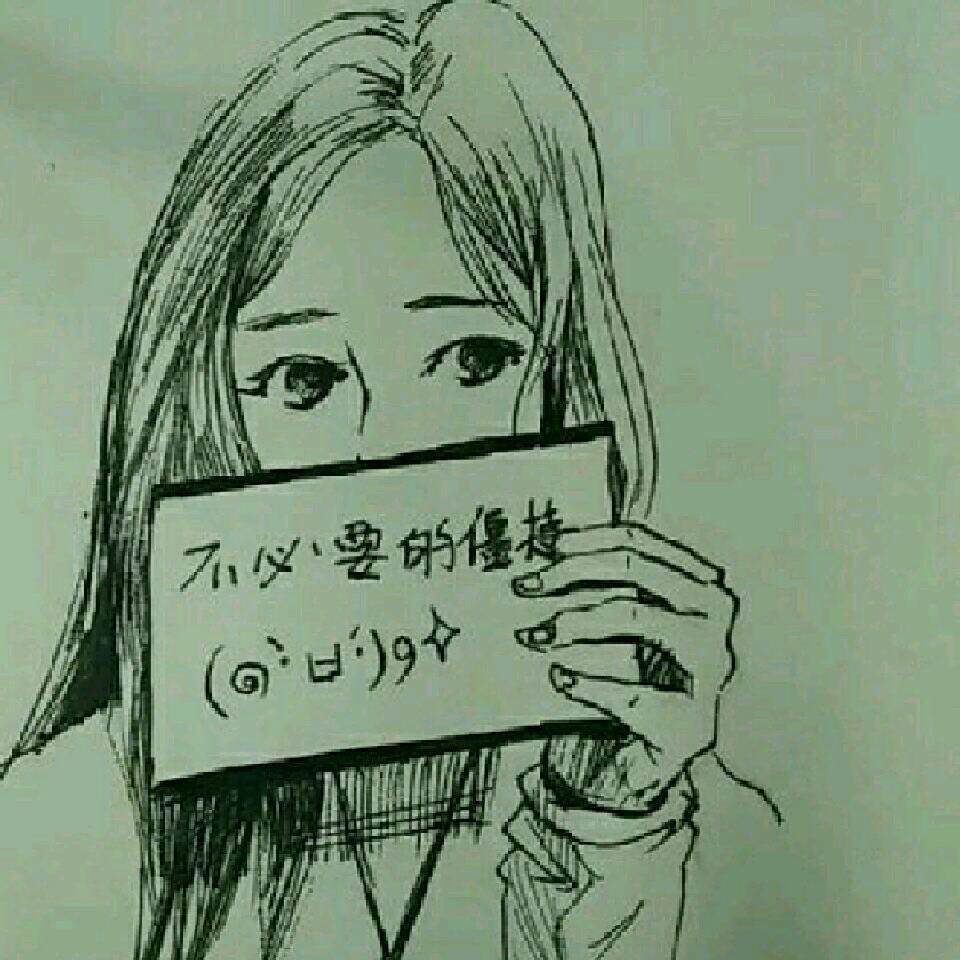 不必要的僵持
(๑•̀ㅂ•́)و✧